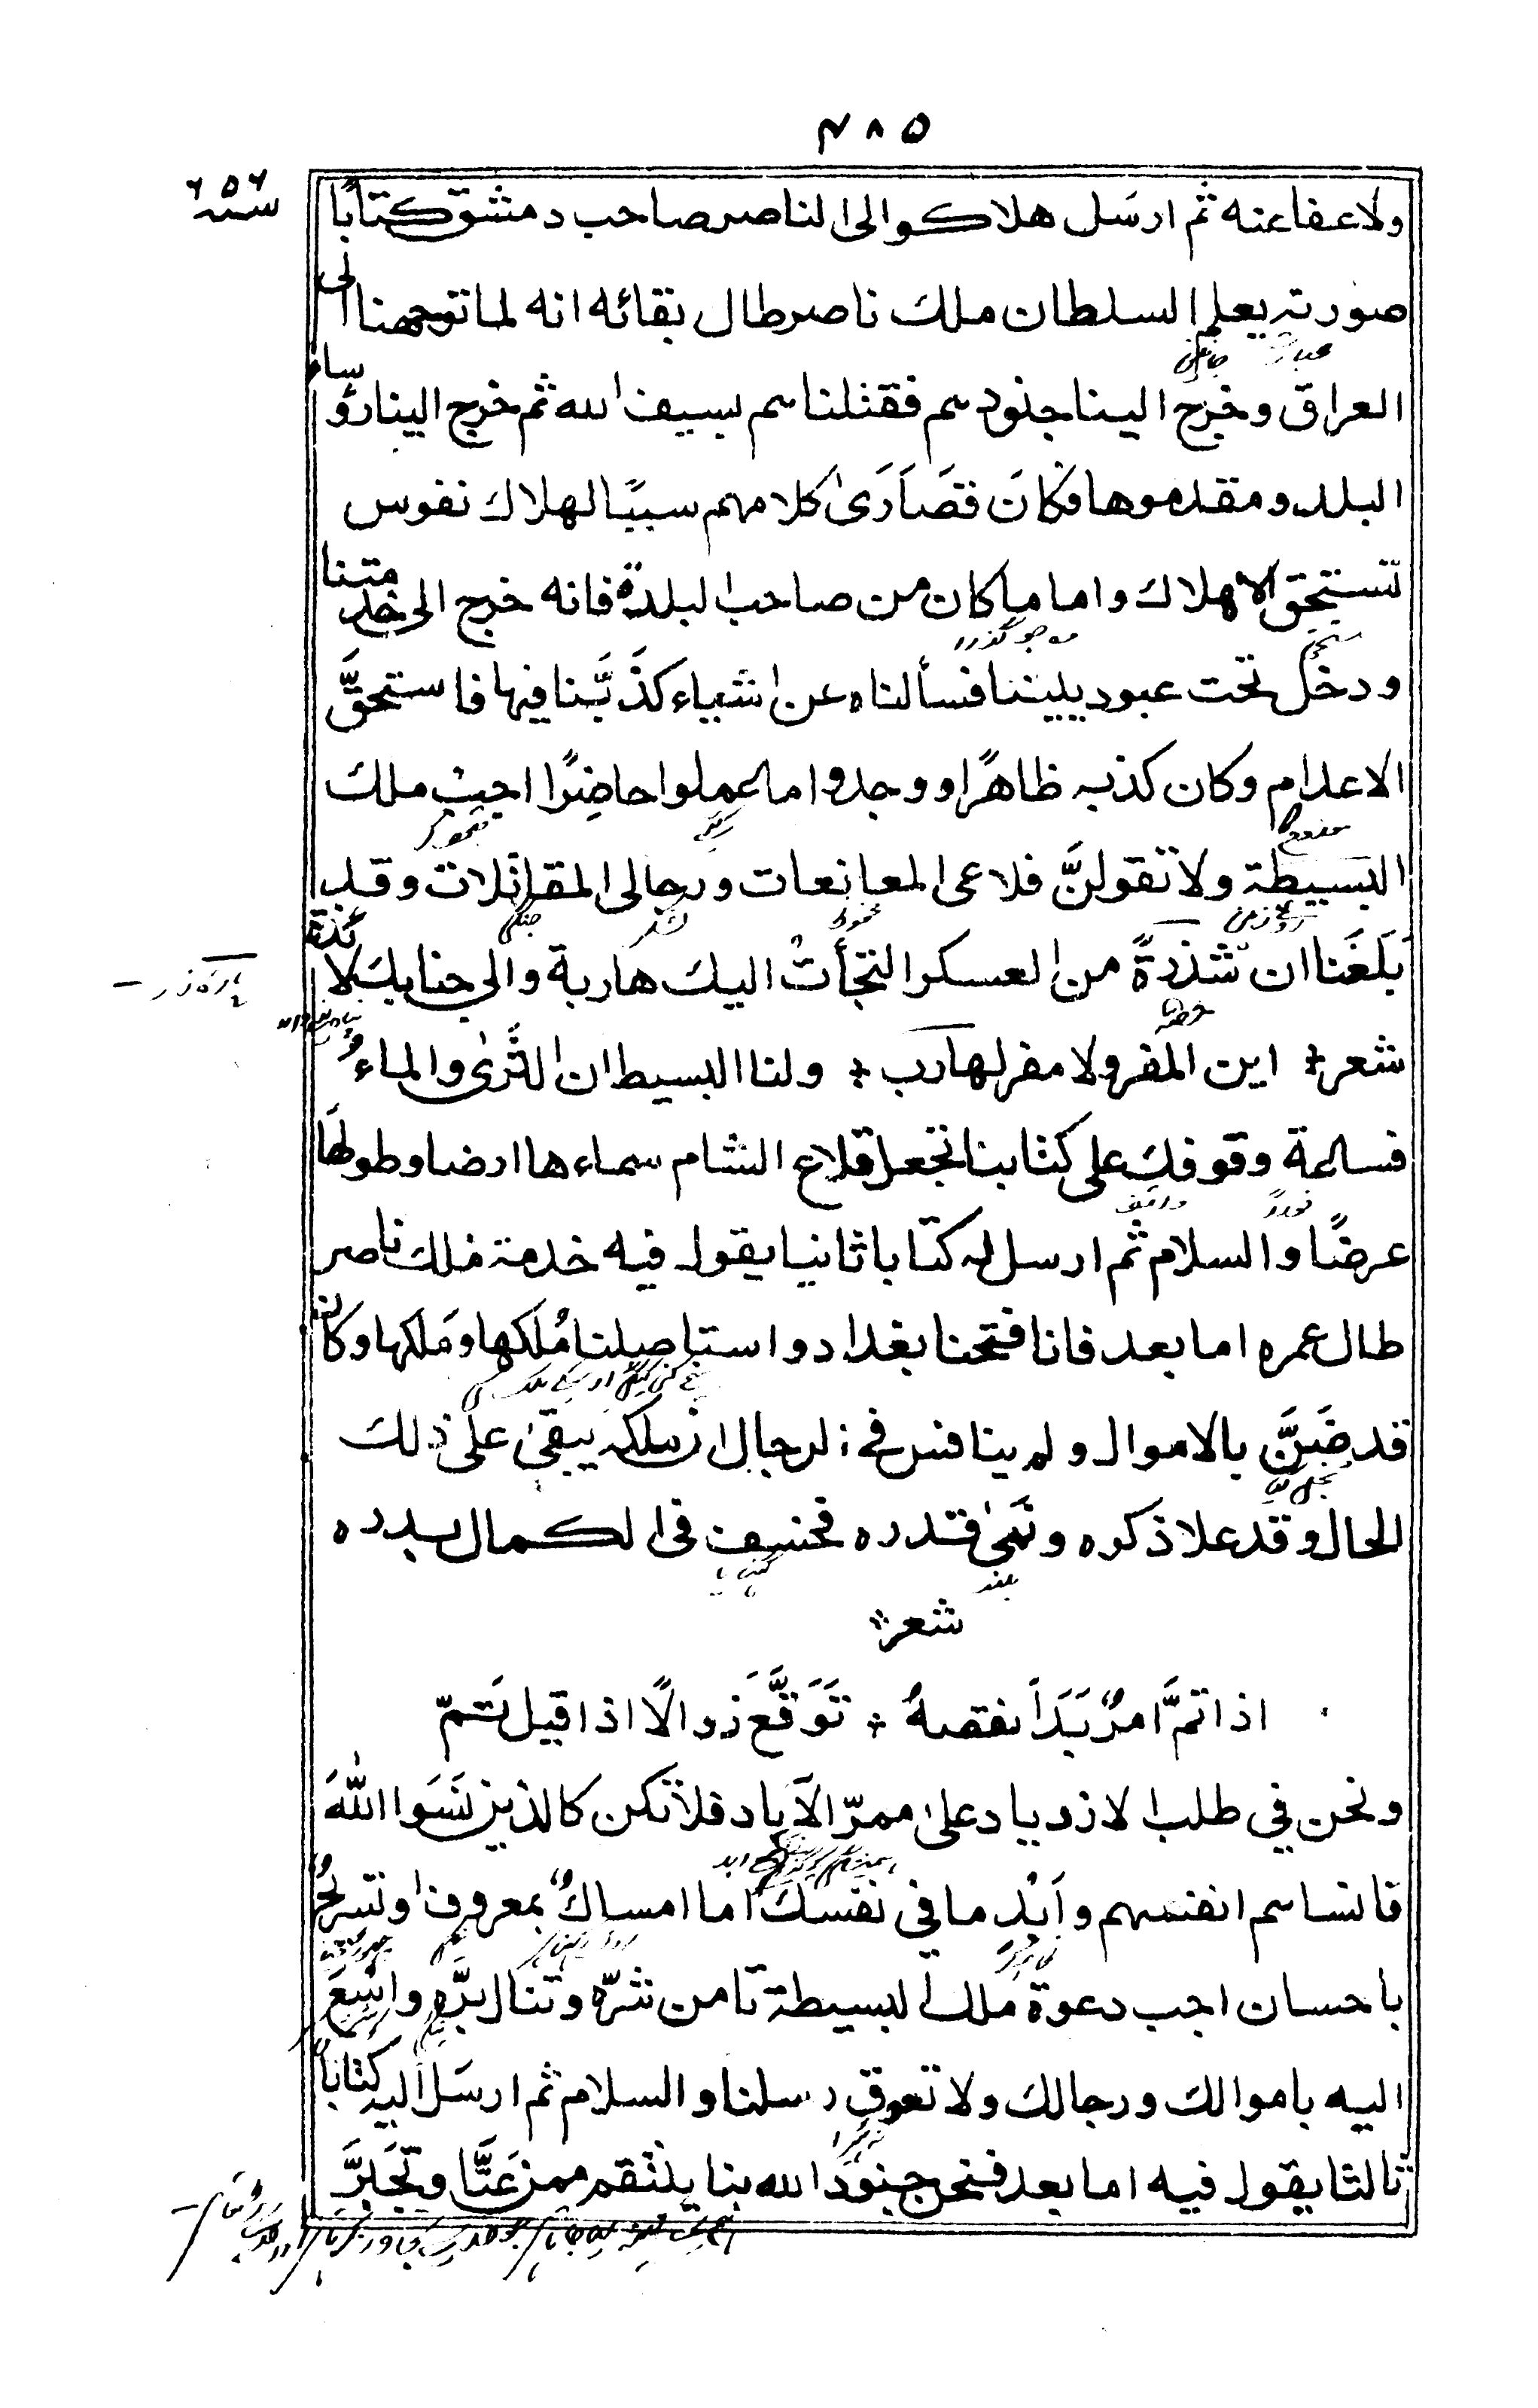 ۴۸۵
سنہ ۶۵۶
ولا عفا عنه ثم ارسَل هلاكو الى الناصر صاحب دمشق كتابًا
صورته يعلم السلطان ملك ناصر طال بقائه انه لما توجهنا الى
العراق وخرج الينا جنودهم فقتلناهم بسيف الله ثم خرج الينا رؤساء
البلد ومقدموها فكانَ قصَارَىٰ كلامهم سببًا لهلاك نفوس
تستحق الاهلاك واما ما كان من صاحب البلدة فانه خرج الى خدمتنا
ودخل تحت عبوديتنا فسألناه عن اشياء كذَبَّنا فيها فاستحقَّ
الاعدام وكان كذبه ظاهرًا ووجدوا ما عملوا حاضِرًا اجب ملك
البسيطة ولا تقولنَّ قلاعى المانعات ورجالى المقاتلات وقد
بَلَغَنا ان شذرةً من العسكر التجأت اليك هاربة والى جنابك لائذة
شعر ؞ اين المفر ولا مفر لهارب ؞ ولنا البسيطان الثَّرىٰ والماءُ
فساعة وقوفك على كتابنا تجعل قلاع الشام سماءها ارضا وطولهَا
عرضًا والسلام ثم ارسل له كتابا ثانيا يقول فيه خدمة ملك ناصر
طال عمره اما بعد فانا فتحنا بغداد واستاصلنا مُلكها ومَلكها وكان
قد ضَنَّ بالاموال ولم ينافس فى الرجال ان ملكه يبقىٰ علىٰ ذلك
الحال وقد علا ذكره ونَمىٰ قدره فخسف فى الكمال بدره
شعر ؞
اذا تمَّ امرٌ بَدَا نقصهُ ؞ تَوَقَّعَ زوالًا اذا قيل تَمّ
ونحن في طلب الازدياد علىٰ ممرّ الآباد فلا تكن كالذين نَسَوا اللّٰهَ
فانساهم انفسهم واَبْدِ ما في نفسك اما امساكٌ بمعروف او تسريحٌ
باحسان اجب دعوة ملك البسيطة تامن شرّه وتنال برَّه واسْعَ
اليه باموالك ورجالك ولا تعوق رسلنا والسلام ثم ارسَل اليه كتاباً
ثالثا يقول فيه اما بعد فنحن جنود الله بنا ينتقم ممن عَتَّا وتجَبرَّ